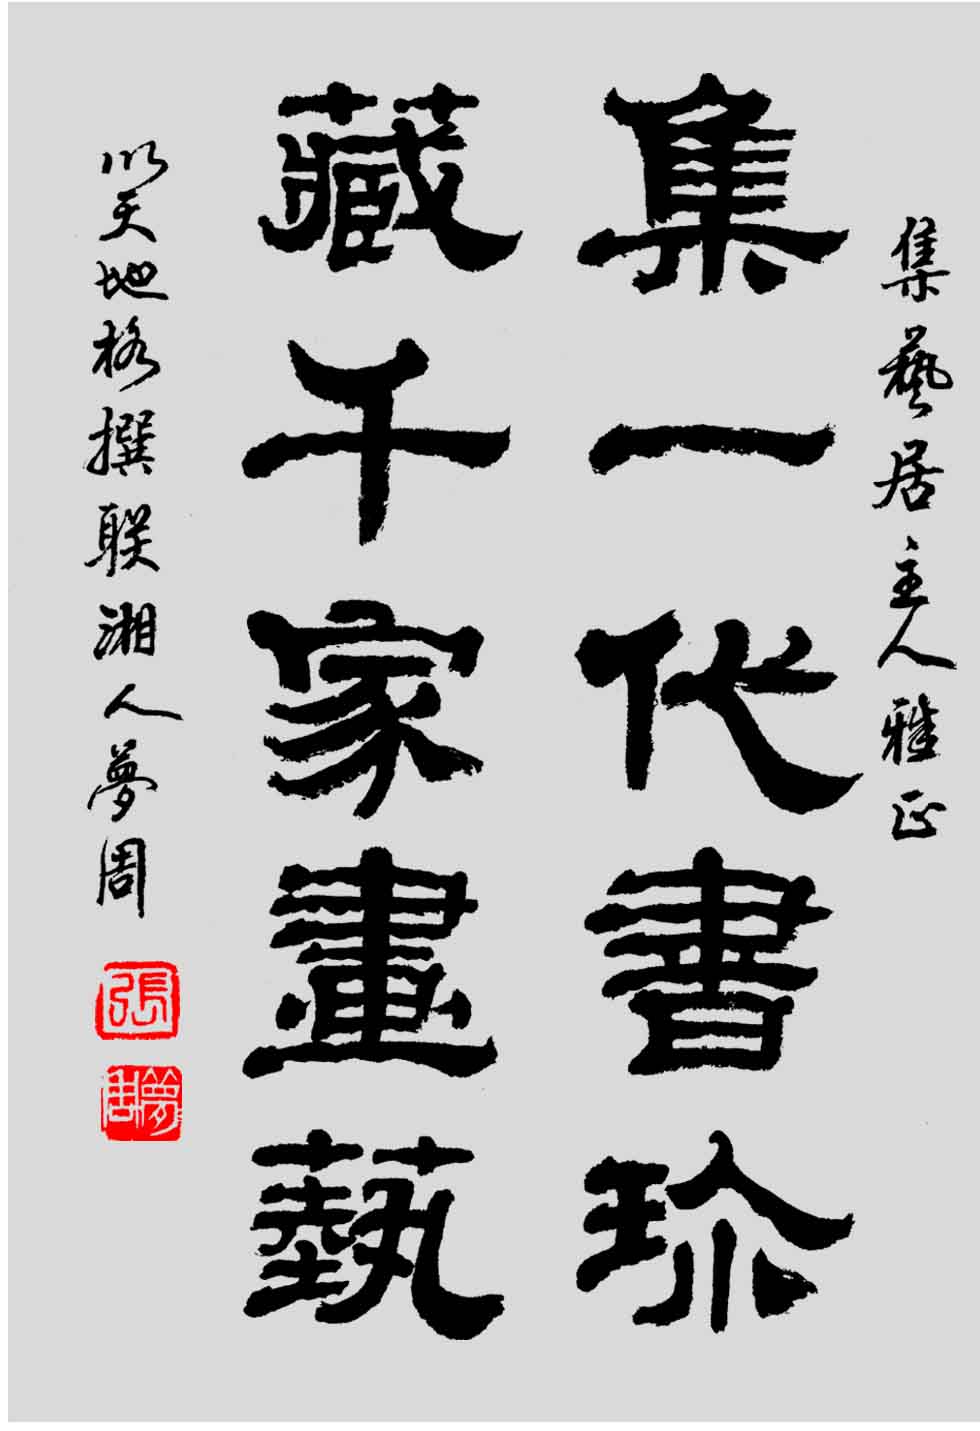 集藝居主人雅正
集一代書珍
藏千家畫藝
以天地格撰联湘人夢周
張
夢周